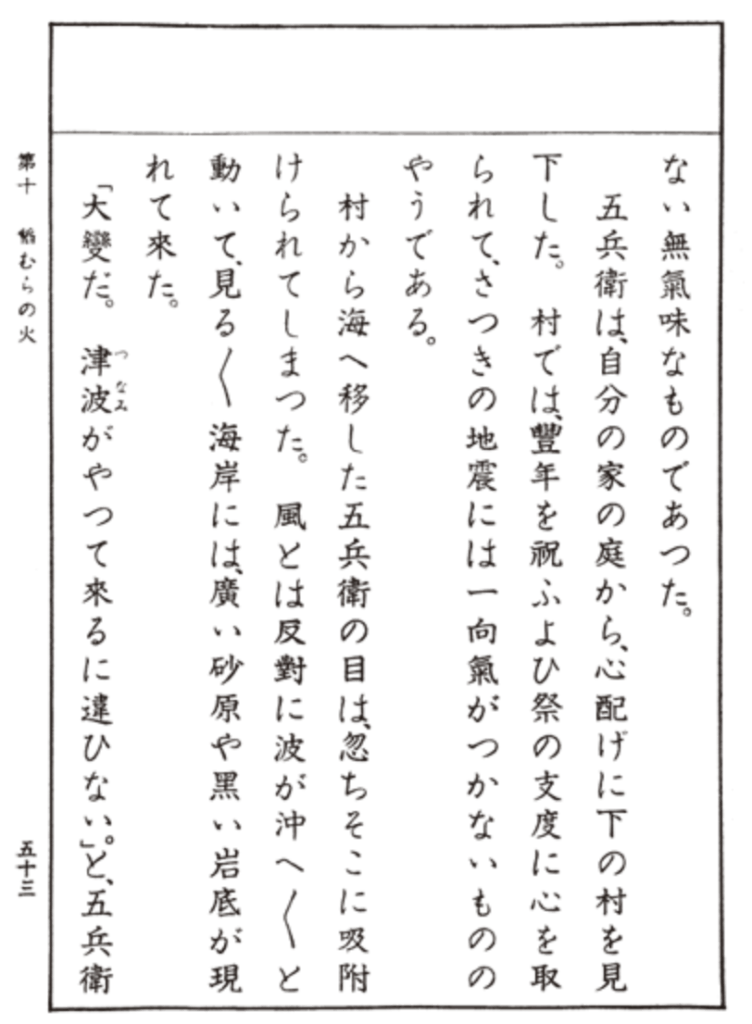 ない無氣味なものであつた。
五兵衞は、自分の家の庭から、心配げに下の村を見
下した。 村では、豐年を祝ふよひ祭の支度に心を取
られて、さつきの地震には一向氣がつかないものの
やうである。
村から海へ移した五兵衞の目は、忽ちそこに吸附
けられてしまつた。 風とは反對に波が沖へ〳〵と
動いて、見る〳〵海岸には、廣い砂原や黑い岩底が現
れて來た。
「大變だ。 津波がやつて來るに違ひない。」と、五兵衞
つなみ
第十 稻むらの火
五十三